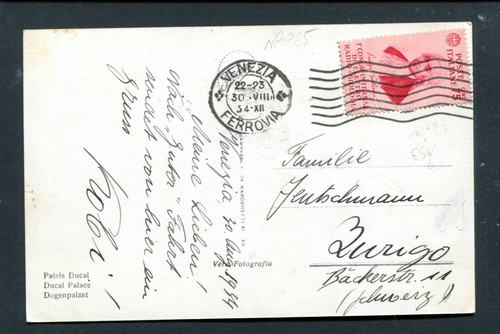 Venezia, 30 Aug. 1934
Meine Lieben!
Nach guter Fahrt
sendet von hier ein
Gruss
Kobi!
Palais Ducal
Ducal Palace
Dogenpalast
Vera Fotografia
VENEZIA
22-23
30 VIII
34-XII
FERROVIA
POSTE
ITALIANE
Familie
Jentschmann
Zurigo
Bäckerstr. 11
(Schweiz)